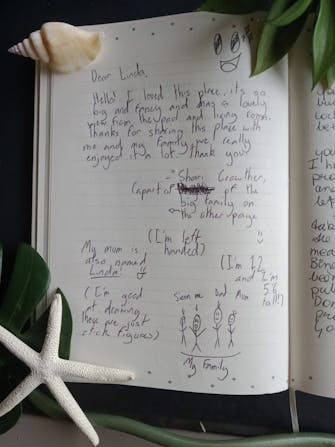 Dear Linda,
Hello! I loved this place, it's so
big and fancy and has a lovely
view from the pool and living room.
Thanks for sharing this place with
me and my family, we really
enjoyed it a lot. thank you!
- Shari Crowther,
(apart of of the
big family on
the other page
(I'm left
handed)
My mum is
also named
Linda!
(I'm 12
and I'm
5'6
tall!)
(I'm good
at drawing
these are just
stick figures)
me Dad Mum
My Family